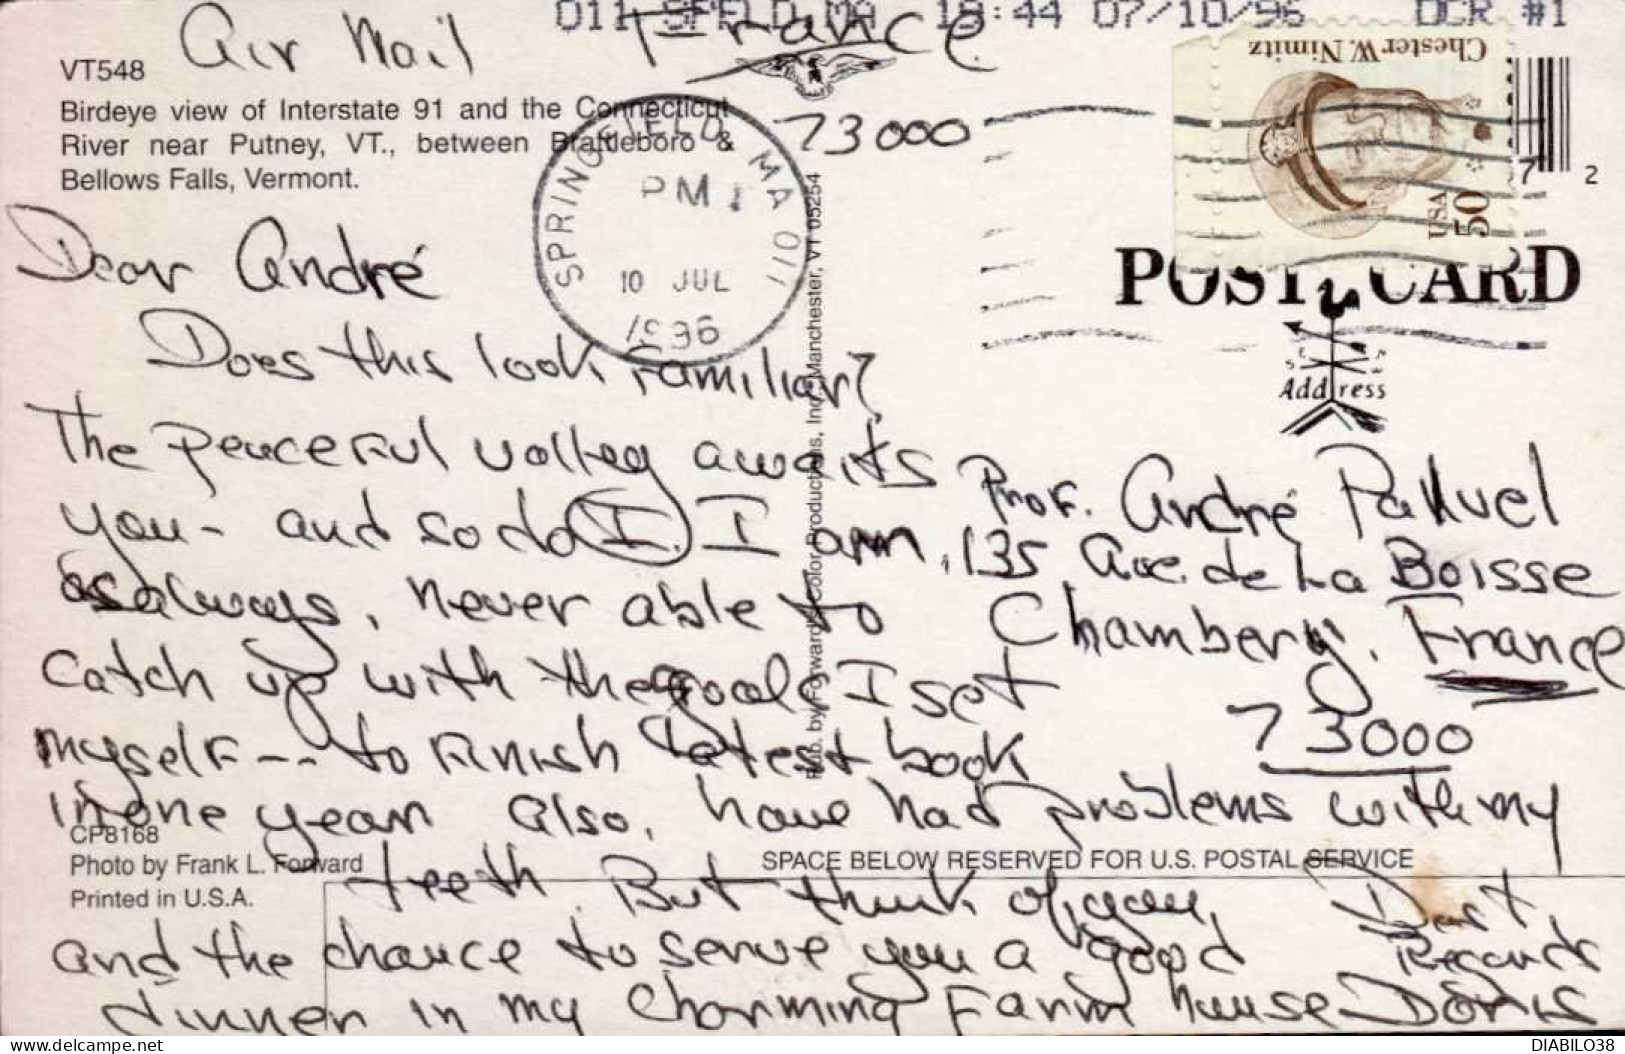 011 SPFLD MA 18:44 07/10/96 OCR #1
Air Mail France
VT548
Birdeye view of Interstate 91 and the Connecticut
River near Putney, VT., between Brattleboro &
Bellows Falls, Vermont.
73000
SPRINGFIELD MA 011
PM
10 JUL
1996
Chester W. Nimitz
USA
50
7 2
POST CARD
Address
Pub. by Forward's Color Productions, Inc., Manchester, VT 05254
Dear André
Does this look familiar?
The peaceful valley awaits
you - and so do I. I am,
as always, never able to
catch up with the goals I set
myself -- to finish latest book
in one year. Also, have had problems with my
teeth. But think of you,
and the chance to serve you a good
dinner in my charming farm house
Best,
Regards
Doris
Prof. André Palluel
135 Ave. de La Boisse
Chambery, France
73000
CP8168
Photo by Frank L. Forward
Printed in U.S.A.
SPACE BELOW RESERVED FOR U.S. POSTAL SERVICE
https://www.delcampe.net
DIABILO38